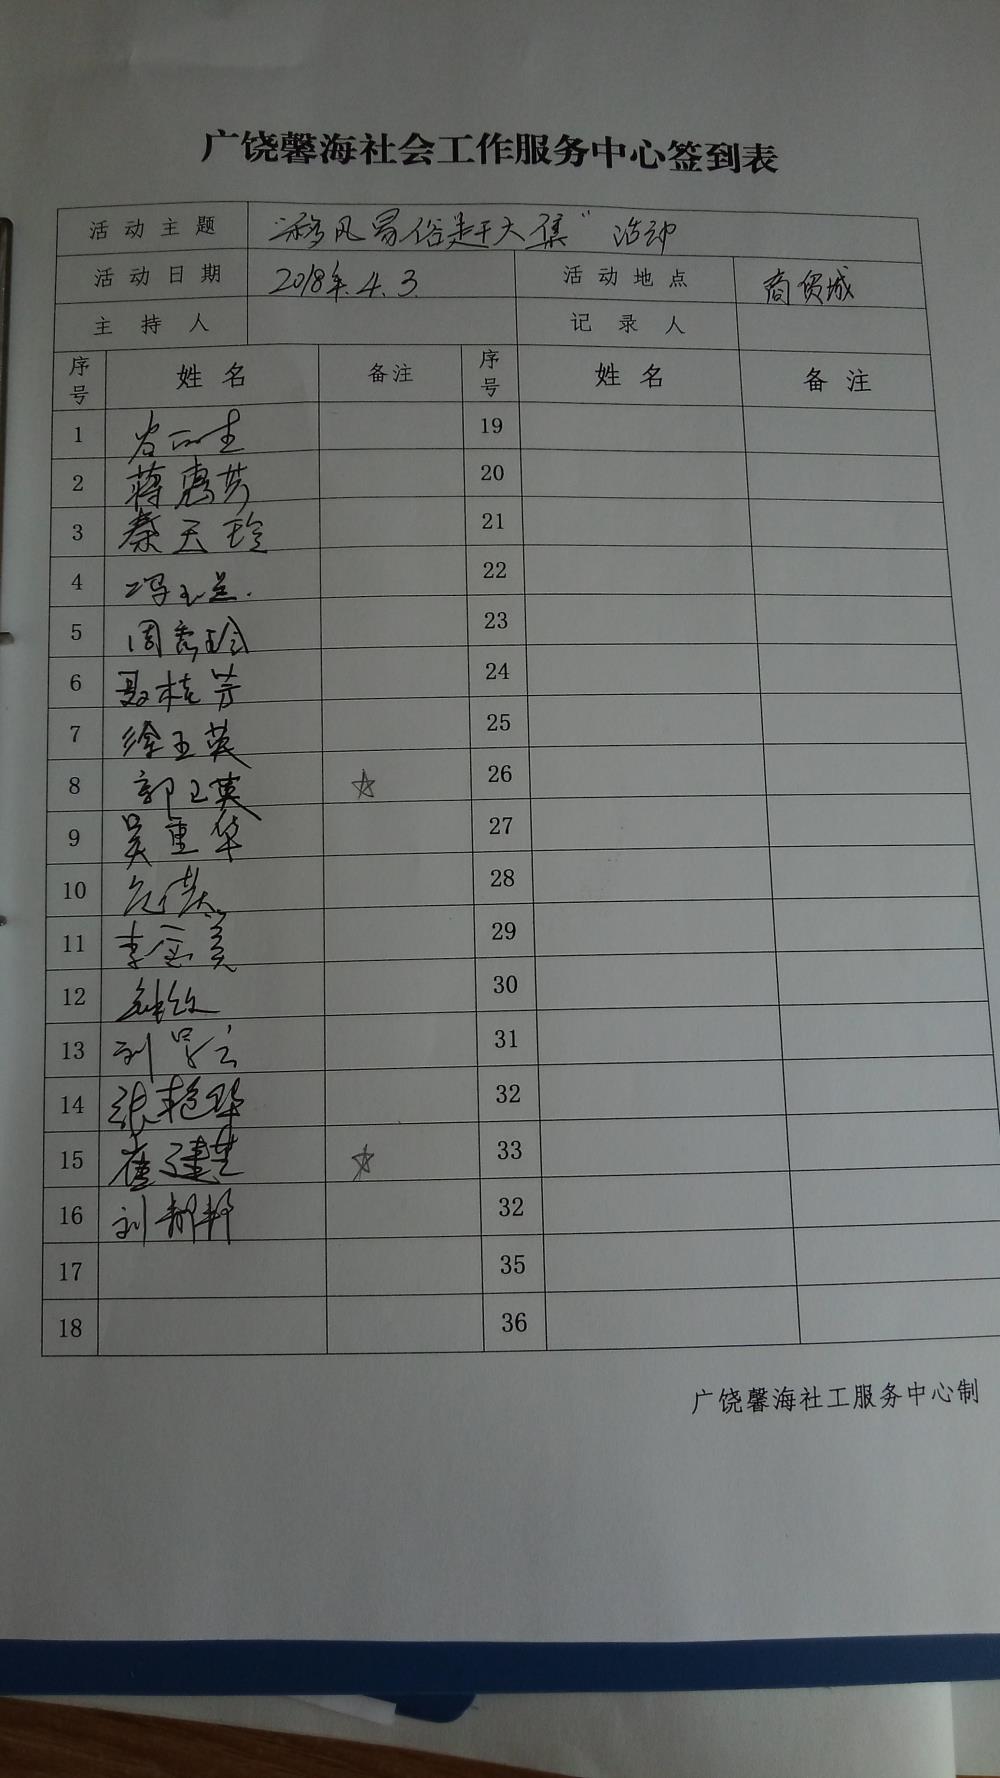 广饶馨海社会工作服务中心签到表
活动主题 "移风易俗赶大集"活动
活动日期 2018年.4.3. 活动地点 商贸城
主持人 记录人
序号 姓名 备注 序号 姓名 备注
1 19
2 蒋惠芳 20
3 秦天玲 21
4 冯玉兰. 22
5 周秀玲 23
6 聂桂芳 24
7 徐玉英 25
8 郭卫英 ☆ 26
9 吴重华 27
10 28
11 李金美 29
12 30
13 刘 31
14 张艳华 32
15 崔建芝 ☆ 33
16 刘 32
17 35
18 36
广饶馨海社工服务中心制